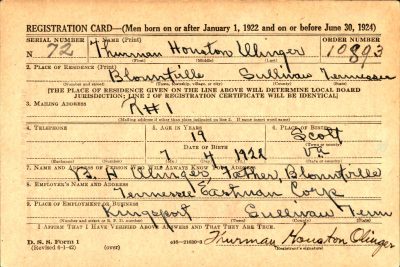 REGISTRATION CARD—(Men born on or after January 1, 1922 and on or before June 30, 1924)
SERIAL NUMBER 1. NAME (Print) ORDER NUMBER
N 72 Thurman Houston Olinger 10893
(First) (Middle) (Last)
2. PLACE OF RESIDENCE (Print)
Blountville Sullivan Tennessee
(Number and street) (Town, township, village, or city) (County) (State)
[THE PLACE OF RESIDENCE GIVEN ON THE LINE ABOVE WILL DETERMINE LOCAL BOARD
JURISDICTION; LINE 2 OF REGISTRATION CERTIFICATE WILL BE IDENTICAL]
3. MAILING ADDRESS
R#1
[Mailing address if other than place indicated on line 2. If same insert word same]
4. TELEPHONE 5. AGE IN YEARS 6. PLACE OF BIRTH
19 Scott
DATE OF BIRTH
7 4 1922 Va
(Exchange) (Number) (Mo.) (Day) (Yr.)
7. NAME AND ADDRESS OF PERSON WHO WILL ALWAYS KNOW YOUR ADDRESS
B. H Olinger, Father, Blountville
8. EMPLOYER'S NAME AND ADDRESS
Tennessee Eastman Corp
9. PLACE OF EMPLOYMENT OR BUSINESS
Kingsport Sullivan Tenn
(Number and street or R. F. D. number) (Town) (County) (State)
I AFFIRM THAT I HAVE VERIFIED ABOVE ANSWERS AND THAT THEY ARE TRUE.
D. S. S. Form 1
(Revised 6-1-42) (over) Thurman Houston Olinger
(Registrant's signature)